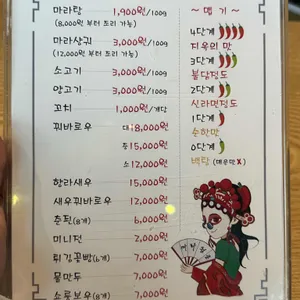 마라탕 1,900원/100g
(8,000원 부터 조리 가능)
마라샹궈 3,000원/100g
(12,000원 부터 조리 가능)
소고기 3,000원/100g
양고기 3,000원/100g
꼬치 1,000원/개당
꿔바로우 대 18,000원
중 15,000원
소 12,000원
한라새우 15,000원
새우꿔바로우 12,000원
춘권(8개) 6,000원
미니전 2,000원
튀김꽃빵(6개) 7,000원
물만두 7,000원
소롱보우(8개) 7,000원
~ 맵기 ~
4단계
지옥의 맛
3단계
불닭정도
2단계
신라면정도
1단계
순한맛
0단계
백탕 (매운맛 X)